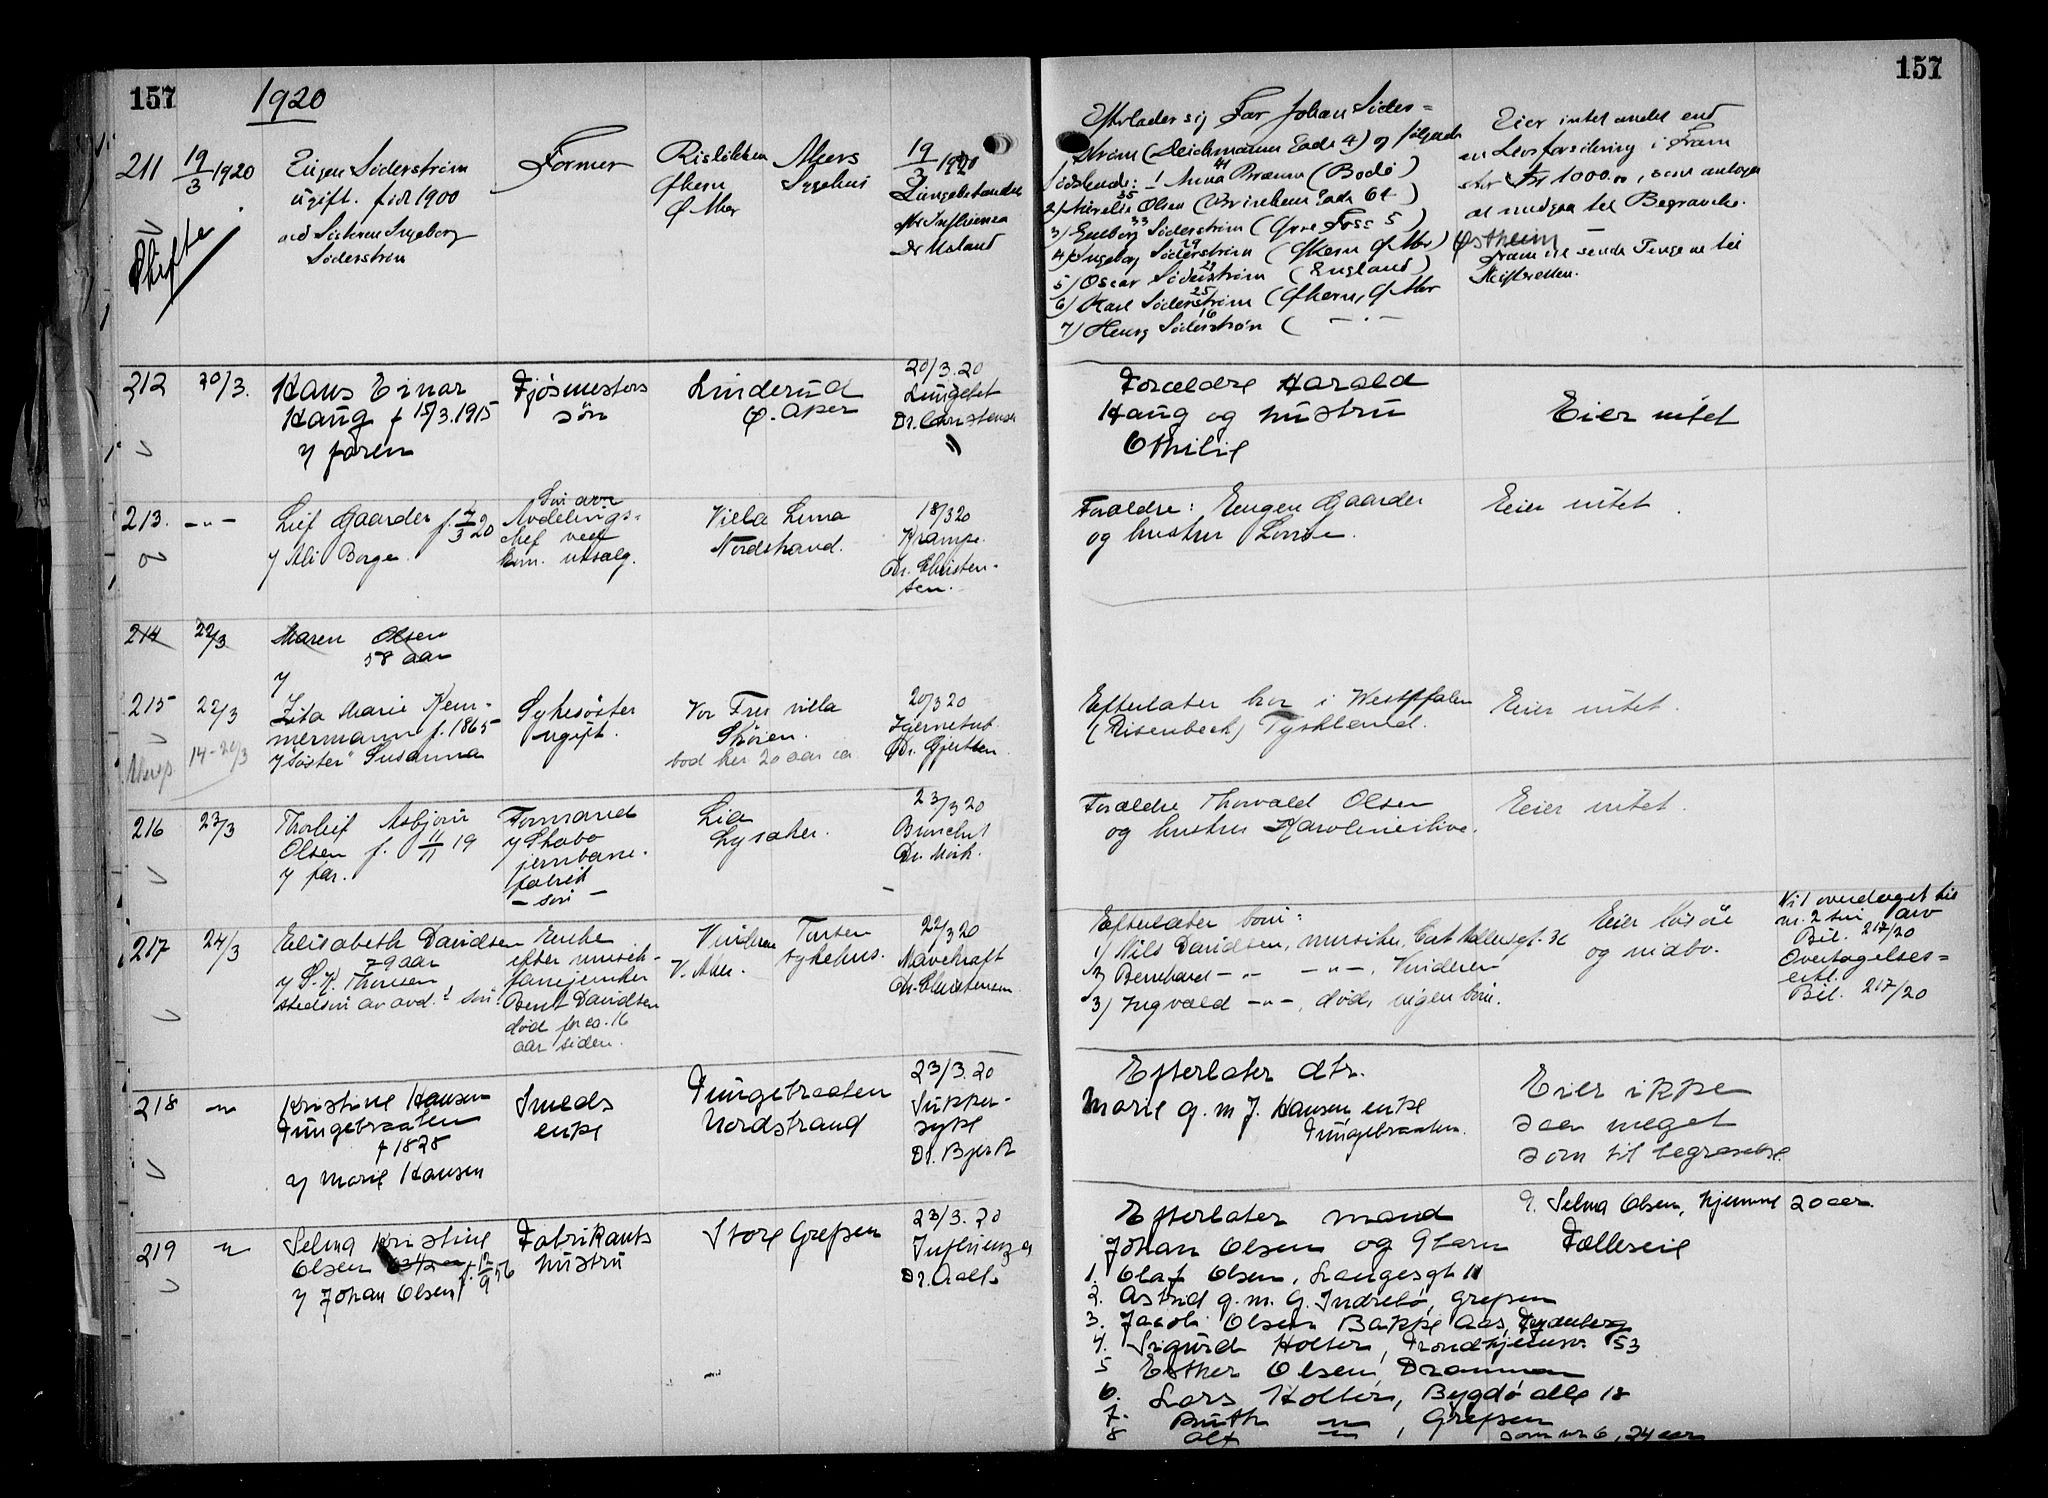 157
1920
157
211 19/3 1920 Eugen Söderström Former Risløkken Akers 19/3 1920
ugift. født 1900 Økern Sygehus
ved Søsteren Ingeborg Ø Aker
Söderström
Skifte
Efterlader sig Far Johan Söder=
ström (Deichmanns Gade 4) og følgende
Sødskende: 1 Anna 41 (Bodø)
2) 35 Olsen
3) 33 Söderström ( Foss 5)
4) Ingeborg 29 Söderström (Økern Ø Aker)
5) Oscar Söderström (England)
6) Karl 25 Söderström (Økern, Ø Aker
7) Henry 16 Söderström ( — " —
Eier intet andet end
en Livsforsikring i Fram
stor Kr 1000.00, som antages
at medgaa til Begravelse.
Fram vil sende Pengene til
Skifteretten.
212 20/3. Hans Einar Fjösmesters Linderud 20/3.20
Haug f 15/3.1915 sön Ø. Aker Lungebet
y faren Dr. Christensen
Forældre Harald
Haug og hustru Eier intet
Othilie
213. —"— Leif Gaarder f. 4/3 20 Sön av Villa Luna 18/3 20
y Avdelings= Nordstrand. Krampe.
chef ved Dr. Christen-
kom. utsalg. sen.
Forældre: Eugen Gaarder Eier intet
og hustru Louise.
214 22/3 Maren Olsen
58 aar
y
215 22/3 Zita Marie Kem- Sykesöster Vor Frue villa 20/3 20
mermann f. 1865 ugift. Skøien. Hjernetub
y "Söster" Susanna bod her 20 aar ca Dr. Gjertsen
14-20/3
Efterlater bror i Westfalen Eier intet.
(Riesenbeck) Tyskland.
216 23/3 Thorleif Asbjørn Formand Lia 23/3 20
Olsen f. 11/11 19 y Skabo Lysaker. Bronchit
y far. jernbane- Dr. Mörk.
fabrik
— sön —
Forældre Thorvald Olsen Eier intet.
og hustru
217 24/3 Elisabeth Davidsen Enke Vinderen Tåsen 22/3 20
79 aar efter musik- V. Aker. sykehus. Mavekræft
y S. K. Thorsen fanejunker Dr. Christensen
stedsön av avd.s sön Bernt Davidsen
död for ca. 16
aar siden.
Efterlater barn: Eier lösöre
1) Nils Davidsen, musiker, og indbo.
2) Bernhard —"— —"—, Vinderen
3) Ingvald —"—, død, ingen barn.
Vil overdraget til
nr. 2 sin arv
Bil. 217/20
Overtagelses=
erkl.
Bil. 217/20
218 —"— Kristine Hansen Smeds Tungebraaten 23/3.20
Tungebraaten enke Nordstrand Sukker-
f 1828 syke
y Marie Hansen Dr. Bjerk
Efterlater dtr.
Marie g. m J. Hansen enke
Tungebraaten.
Eier ikke
saa meget
som til begravelse.
219 " Selma Kristine Fabrikants Store Grefsen 23/3.20
Olsen f. 12/9 56 hustru Influenza
y Johan Olsen Dr. Aall
Efterlater mand 9. Selma Olsen, hjemme 20 aar.
Johan Olsen og 9 barn Fælleseie
1. Olaf Olsen, Langesgt 11
2. Astrid g. m. G. Indrebö, Grefsen
3. Jacob Olsen Bakke Aas,
4. Sigurd Holter, Trondhjemsv. 53
5 Esther Olsen, Drammen
6. Lars Holter, Bygdö alle 18
7. Ruth —"—, Grefsen
8 Alf —"— som nr 6, 24 aar